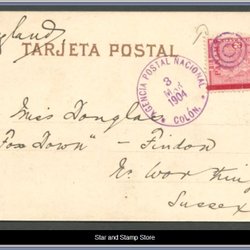 England
TARJETA POSTAL
AGENCIA POSTAL NACIONAL
3
MAY
1904
COLÓN.
Miss Douglas
"Fox Down" - Findon
Nr Worthing
Sussex
Star and Stamp Store